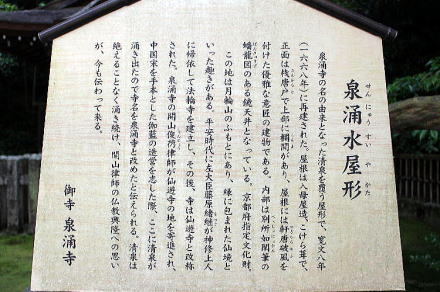 泉涌水屋形
せんにゅうすいやかた
泉涌寺の名の由来となった清泉を覆う屋形で、寛文八年
（一六六八年）に再建された。屋根は入母屋造、こけら葺で、
正面は桟唐戸で上部に欄間があり、屋根には軒唐破風を
付けた優雅な意匠の建物である。内部は別所如閑筆の
蟠龍図のある鏡天井となっている。京都府指定文化財。
この地は月輪山のふもとにあり、緑に包まれた仙境と
いった趣きがある。平安時代に左大臣藤原緒継が神修上人
に帰依して法輪寺を建立し、その後、寺は仙遊寺と改称
された。泉涌寺の開山俊芿律師が仙遊寺の地を寄進され、
中国宋を手本とした伽藍の造営を志した際、ここに清泉が
涌き出たので寺名を泉涌寺と改めたと伝えられる。清泉は
絶えることなく涌き続け、開山律師の仏教興隆への思い
が、今も伝わって来る。
御寺 泉涌寺